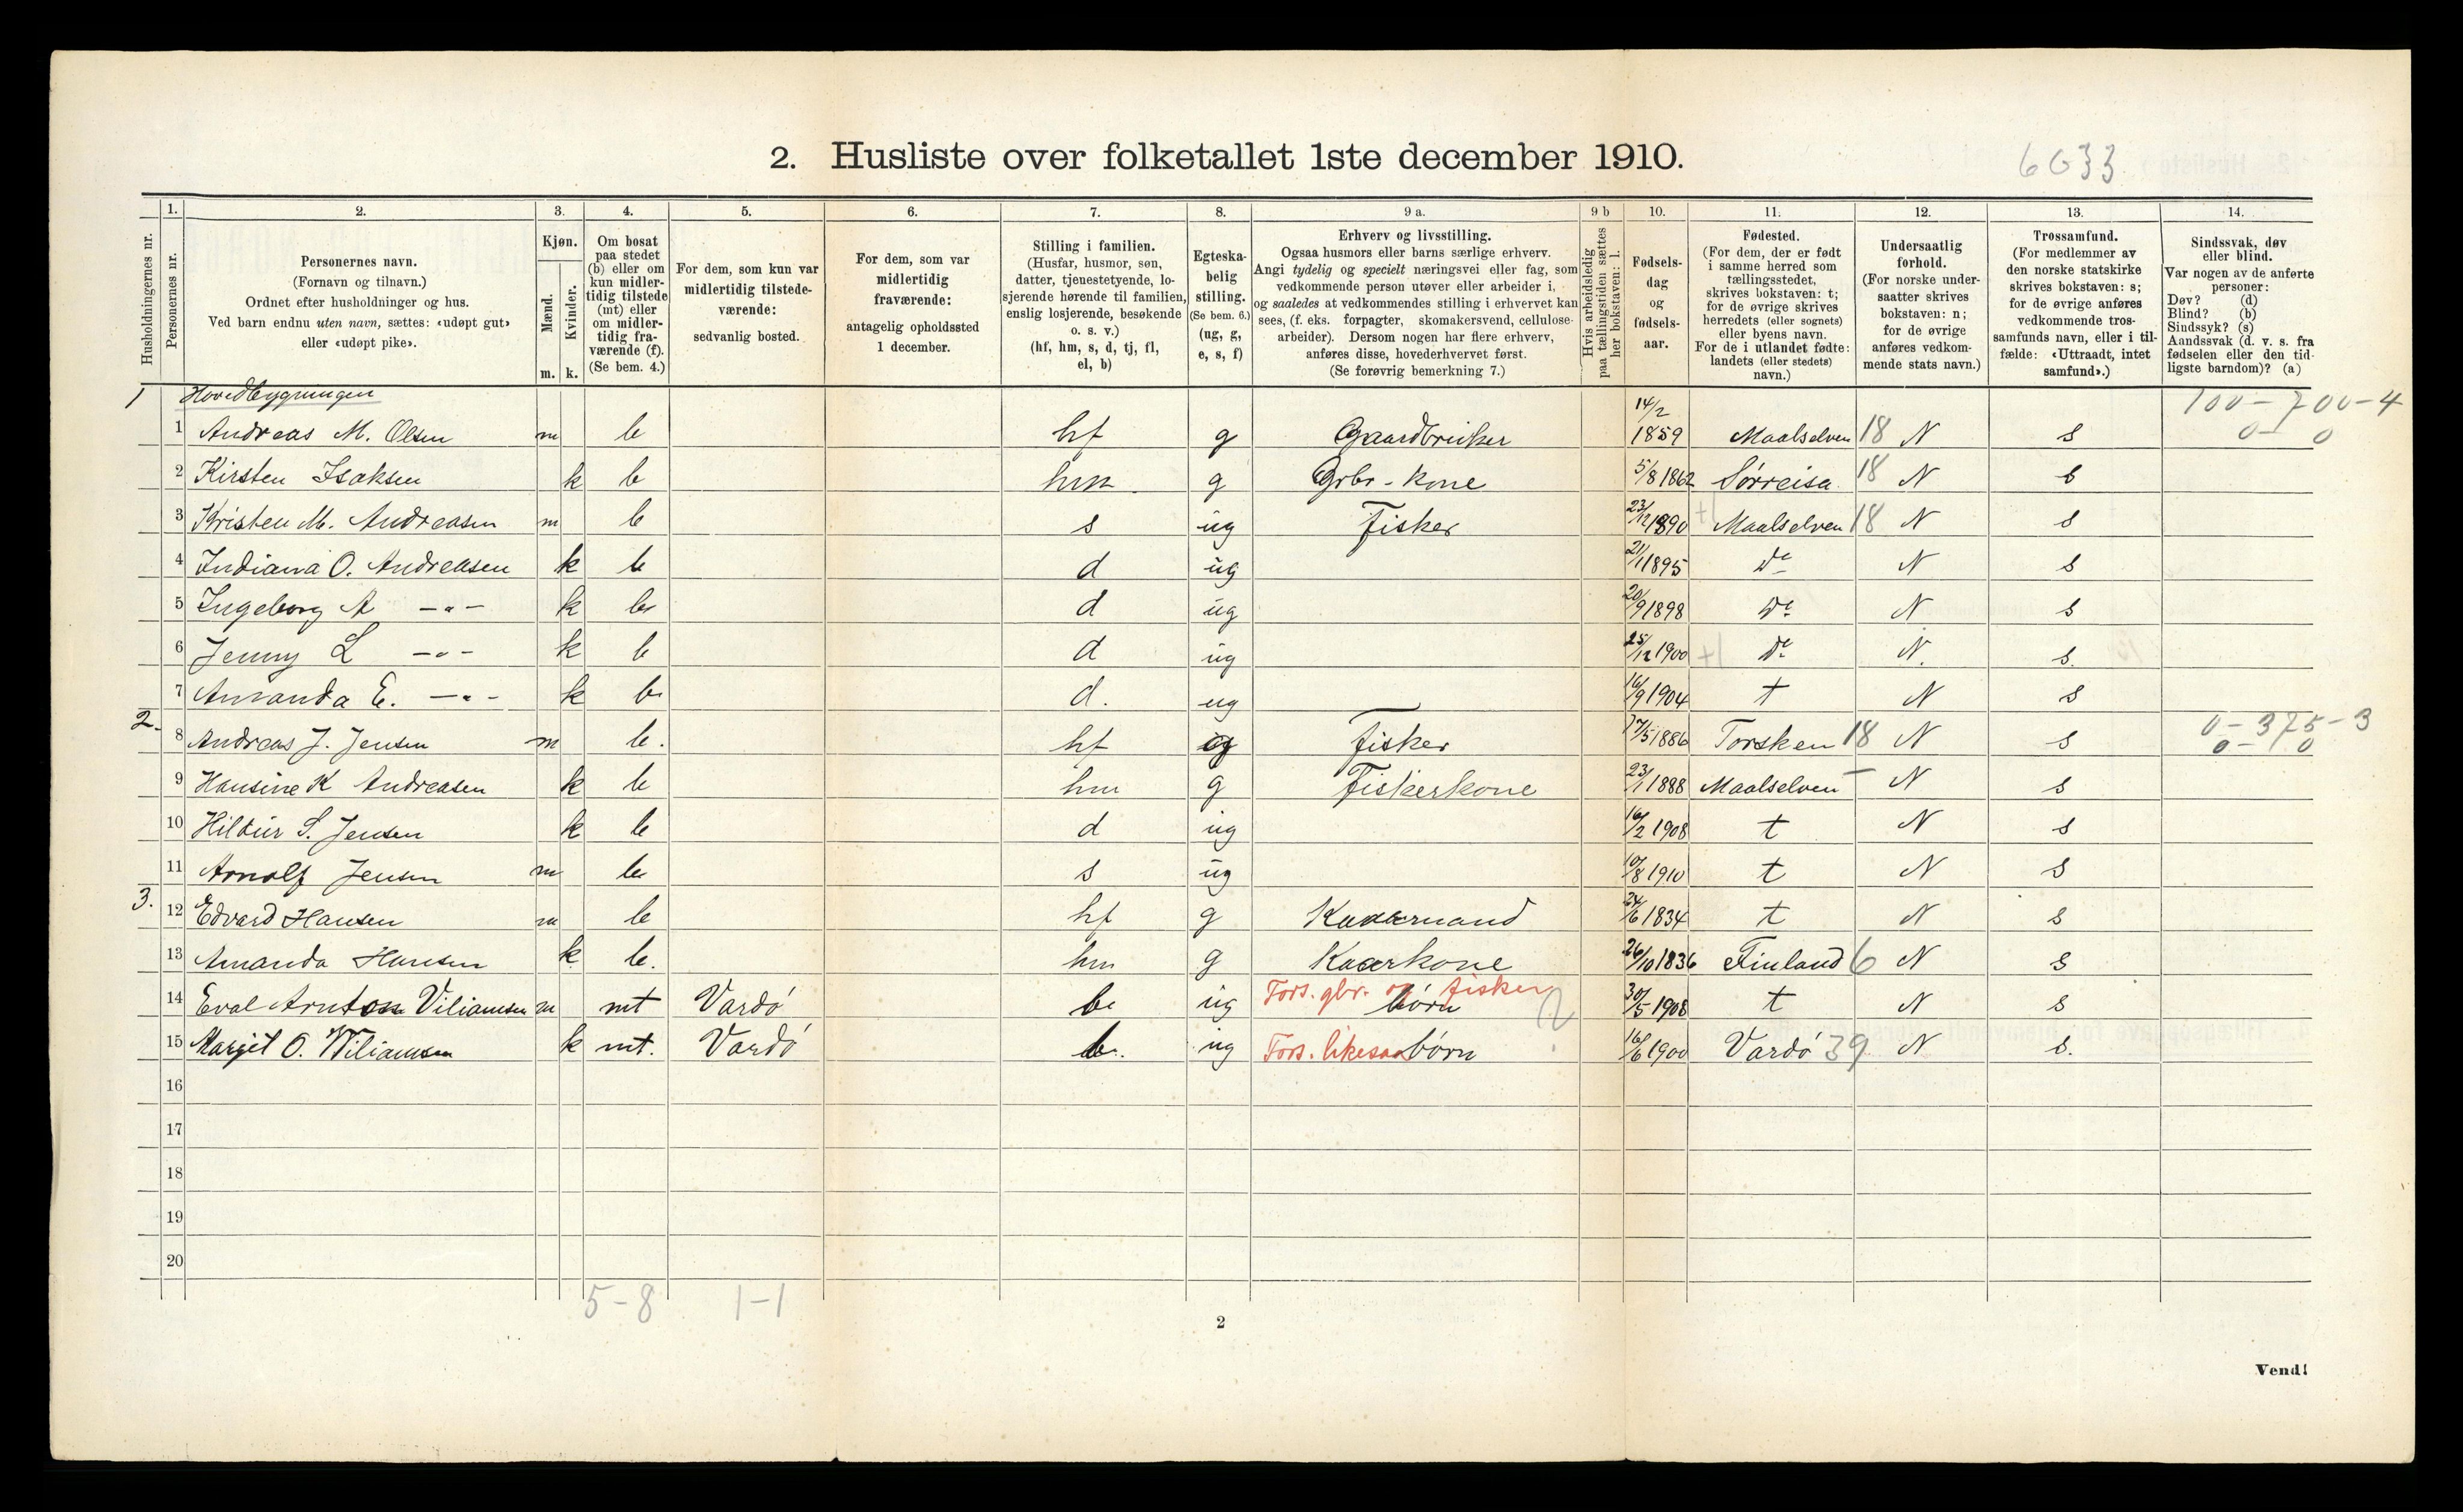 2. Husliste over folketallet 1ste december 1910.
6033
1. 2. 3. 4. 5. 6. 7. 8. 9 a. 9 b 10. 11. 12. 13. 14.
Husholdningernes nr.
Personernes nr.
Personernes navn.
(Fornavn og tilnavn.)
Ordnet efter husholdninger og hus.
Ved barn endnu uten navn, sættes: «udøpt gut»
eller «udøpt pike».
Kjøn.
Mænd.
Kvinder.
m. k.
Om bosat
paa stedet
(b) eller om
kun midler-
tidig tilstede
(mt) eller
om midler-
tidig fra-
værende (f).
(Se bem. 4.)
For dem, som kun var
midlertidig tilstede-
værende:
sedvanlig bosted.
For dem, som var
midlertidig
fraværende:
antagelig opholdssted
1 december.
Stilling i familien.
(Husfar, husmor, søn,
datter, tjenestetyende, lo-
sjerende hørende til familien,
enslig losjerende, besøkende
o. s. v.)
(hf, hm, s, d, tj, fl,
el, b)
Egteska-
belig
stilling.
(Se bem. 6.)
(ug, g,
e, s, f)
Erhverv og livsstilling.
Ogsaa husmors eller barns særlige erhverv.
Angi tydelig og specielt næringsvei eller fag, som
vedkommende person utøver eller arbeider i,
og saaledes at vedkommendes stilling i erhvervet kan
sees, (f. eks. forpagter, skomakersvend, cellulose-
arbeider). Dersom nogen har flere erhverv,
anføres disse, hovederhvervet først.
(Se forøvrig bemerkning 7.)
Hvis arbeidsledig
paa tællingstiden sættes
her bokstaven: l.
Fødsels-
dag
og
fødsels-
aar.
Fødested.
(For dem, der er født
i samme herred som
tællingsstedet,
skrives bokstaven: t;
for de øvrige skrives
herredets (eller sognets)
eller byens navn.
For de i utlandet fødte:
landets (eller stedets)
navn.)
Undersaatlig
forhold.
(For norske under-
saatter skrives
bokstaven: n;
for de øvrige
anføres vedkom-
mende stats navn.)
Trossamfund.
(For medlemmer av
den norske statskirke
skrives bokstaven: s;
for de øvrige anføres
vedkommende tros-
samfunds navn, eller i til-
fælde: «Uttraadt, intet
samfund».)
Sindssvak, døv
eller blind.
Var nogen av de anførte
personer:
Døv? (d)
Blind? (b)
Sindssyk? (s)
Aandssvak (d. v. s. fra
fødselen eller den tid-
ligste barndom)? (a)
1 Hovedbygningen 100-700-4
1 Andreas M. Olsen m b hf g Gaardbruker 14/2 1859 Maalselven 18 N s 0- 0
2 Kirsten Isaksen k b hm g Grbr-kone 5/8 1862 Sørreisa 18 N s
3 Kristen M. Andreasen m b s ug Fisker 23/12 1890 +1 Maalselven 18 N s
4 Indiana O. Andreasen k b d ug 21/1 1895 do N s
5 Ingeborg A -"- k b d ug 20/9 1898 do N s
6 Jenny L -"- k b d ug 25/12 1900 +1 do N. s.
7 Amanda E. -"- k b d. ug 16/9 1904 t N s
2. 0-375-3
8 Andreas J. Jensen m b. hf g Fisker 17/5 1886 Torsken 18 N s 0- 0
9 Hansine K Andreasen k b hm g Fiskerkone 23/1 1888 Maalselven - N s
10 Hildur S. Jensen k b d ug 16/2 1908 t N s
11 Arnolf Jensen m b s ug 10/8 1910 t N s
3.
12 Edvard Hansen m b hf g Kaarmand 24/6 1834 t N s
13 Amanda Hansen k b. hm g Kaarkone 26/10 1836 Finland 6 N s
14 Eval Arntson Viliamsen m mt Vardø b ug Fors. gbr. og fisker børn 30/5 1908 t N s
15 Margit O. Wiliamsen k mt. Vardø b. ug Fors. likesaa børn 16/6 1900 Vardø 39 N s.
16
17
18
19
20
5-8 1-1
2
Vend!